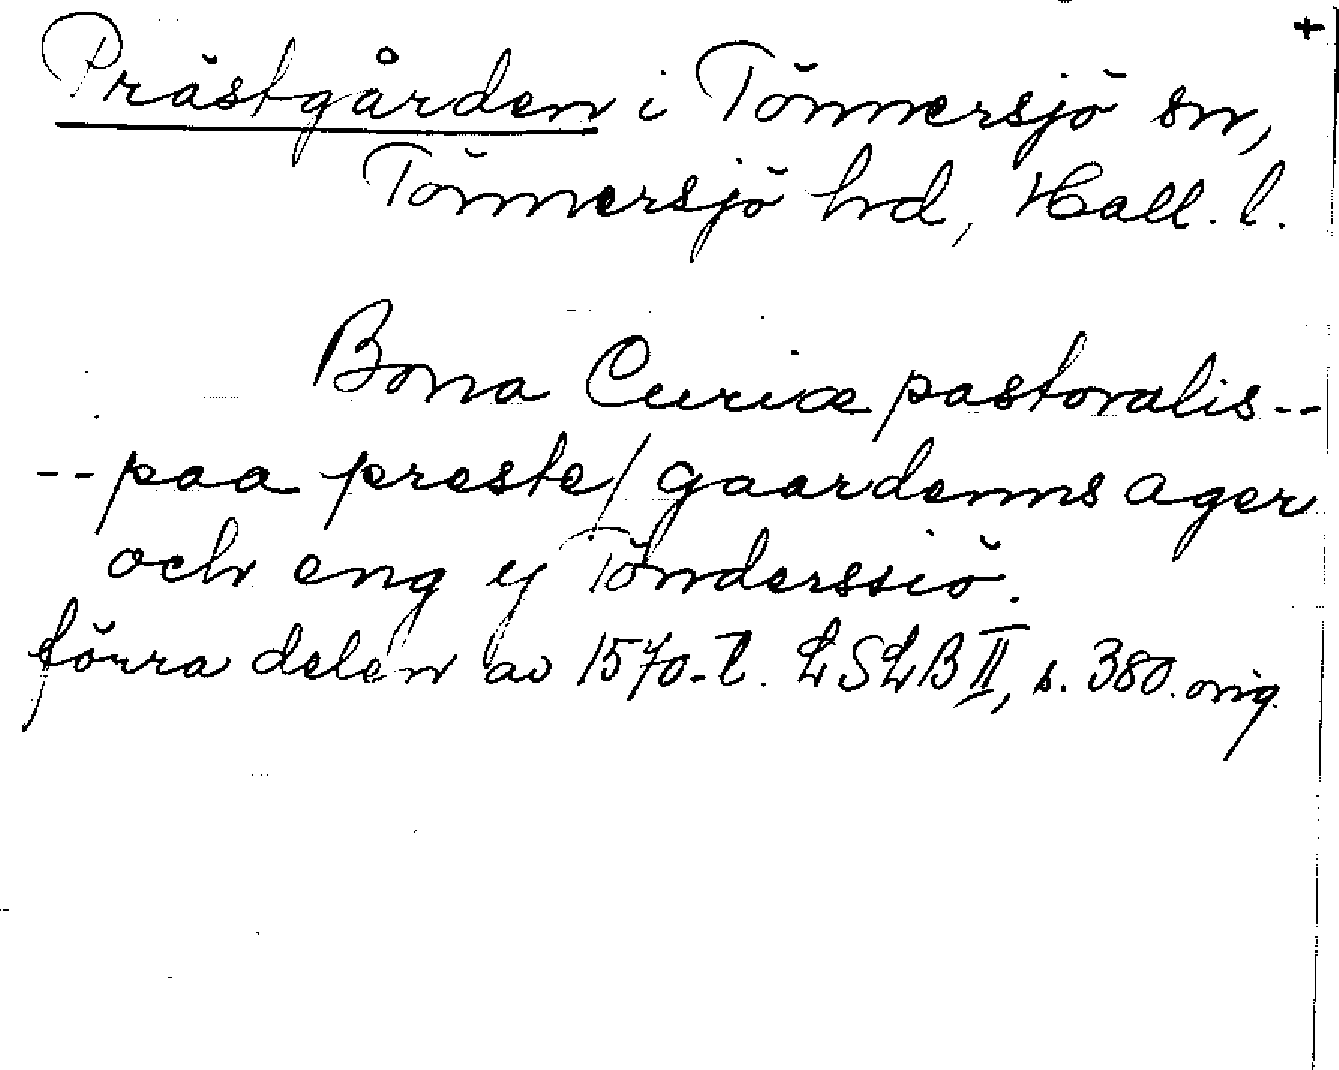 +
Prästgården i Tönnersjö sn,
Tönnersjö hd, Hall. l.
Bona Curiæ pastoralis--
--paa preste/gaardenns ager
och eng y Tönderssiö.
förra delen av 1570-t. LSLB II, s. 380. orig.